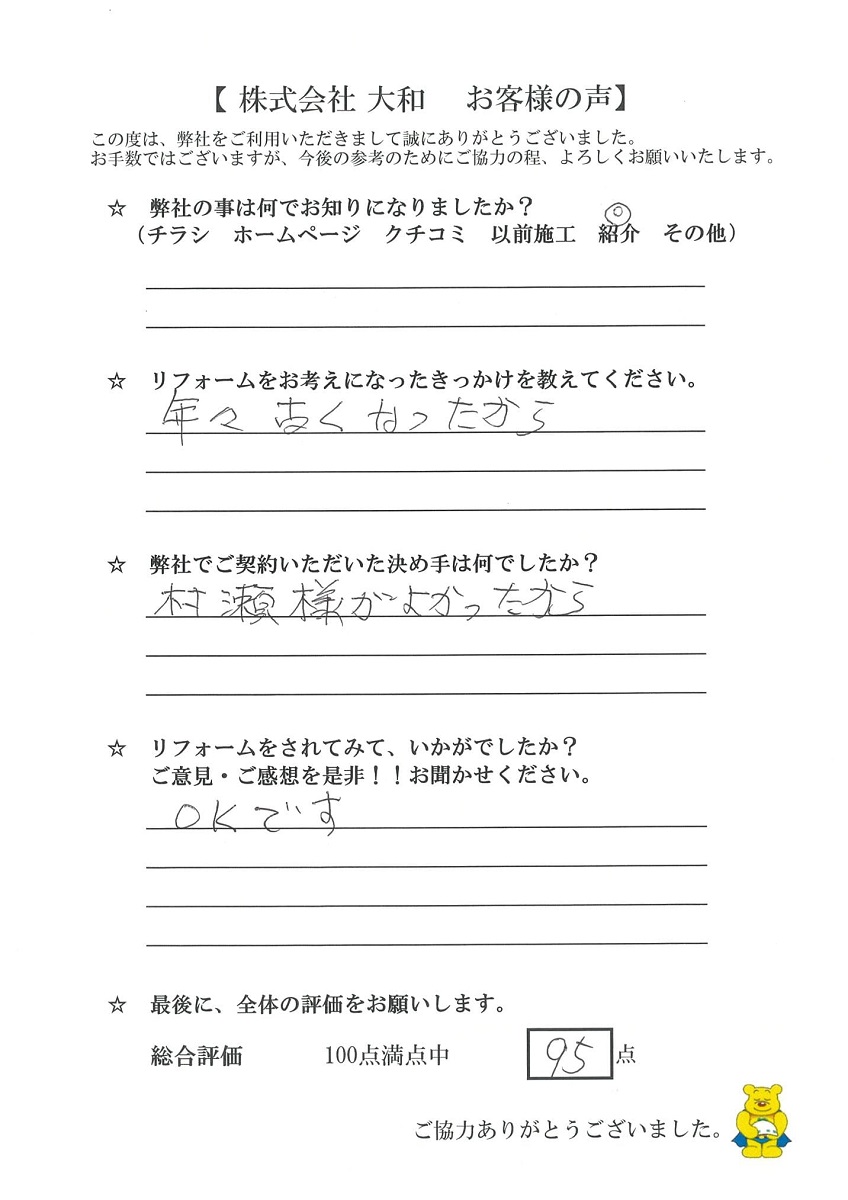 【 株式会社 大和　お客様の声】
この度は、弊社をご利用いただきまして誠にありがとうございました。
お手数ではございますが、今後の参考のためにご協力の程、よろしくお願いいたします。
☆　弊社の事は何でお知りになりましたか？
（チラシ　ホームページ　クチコミ　以前施工　紹介　その他）
☆　リフォームをお考えになったきっかけを教えてください。
年々 古くなったから
☆　弊社でご契約いただいた決め手は何でしたか？
村瀬様がよかったから
☆　リフォームをされてみて、いかがでしたか？
ご意見・ご感想を是非！！お聞かせください。
OKです
☆　最後に、全体の評価をお願いします。
総合評価　100点満点中　95点
ご協力ありがとうございました。